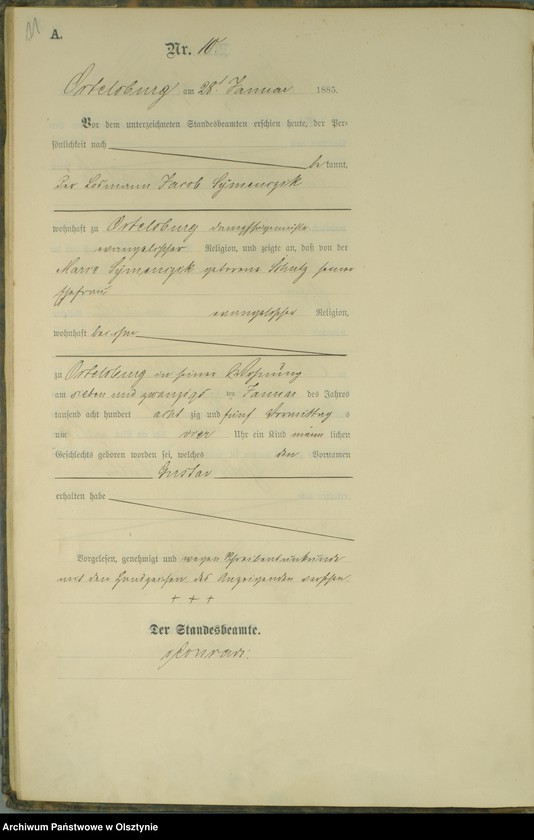 A.
Nr. 10.
Ortelsburg am 28t Januar 1885.
Vor dem unterzeichneten Standesbeamten erschien heute, der Per-
sönlichkeit nach
be kannt,
der Losmann Jacob Symenczik
wohnhaft zu Ortelsburg
evangelischer Religion, und zeigte an, daß von der
Marie Symenczik geborene Schulz seiner
Ehefrau
evangelischer Religion,
wohnhaft bei ihm
zu Ortelsburg in seiner Wohnung
am sieben und zwanzigst ten Januar des Jahres
tausend acht hundert acht zig und fünf Vormittag s
um vier Uhr ein Kind männ lichen
Geschlechts geboren worden sei, welches den Vornamen
Gustav
erhalten habe
Vorgelesen, genehmigt und wegen Schreibensunkunde
mit den Handzeichen des Anzeigenden versehen
+ + +
Der Standesbeamte.
Archiwum Państwowe w Olsztynie